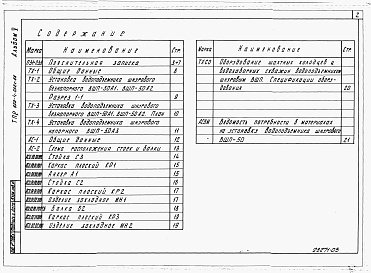 2
Альбом V
Содержание
Марка Наименование Стр.
Пояснительная записка 3÷7
ТХ-1 Общие данные 8
ТХ-2 Установка водоподъемника шнурового
безопорного ВШП-50А1, ВШП-50А2
Разрез 1-1 9
ТХ-3 Установка водоподъемника шнурового
безопорного ВШП-50А1, ВШП-50А2. План 10
ТХ-4 Установка водоподъемника шнурового
опорного ВШП-50А3 11
АС-1 Общие данные 12
АС-2 Схема расположения стоек и балки 13
Стойка С3 14
Каркас плоский КР1 15
Анкер А1 15
Стойка С2 16
Каркас плоский КР2 17
Изделие закладное МН1 17
Балка Б2 18
Каркас плоский КР3 19
Изделие закладное МН2 19
Марка Наименование Стр.
ТХ.СО Оборудование шахтных колодцев и
водозаборных скважин водоподъемником
шнуровым ВШП. Спецификации обору-
дования 20
АС.ВМ Ведомость потребности в материалах
на установку водоподъемника шнурового
ВШП-50 21
23271-03